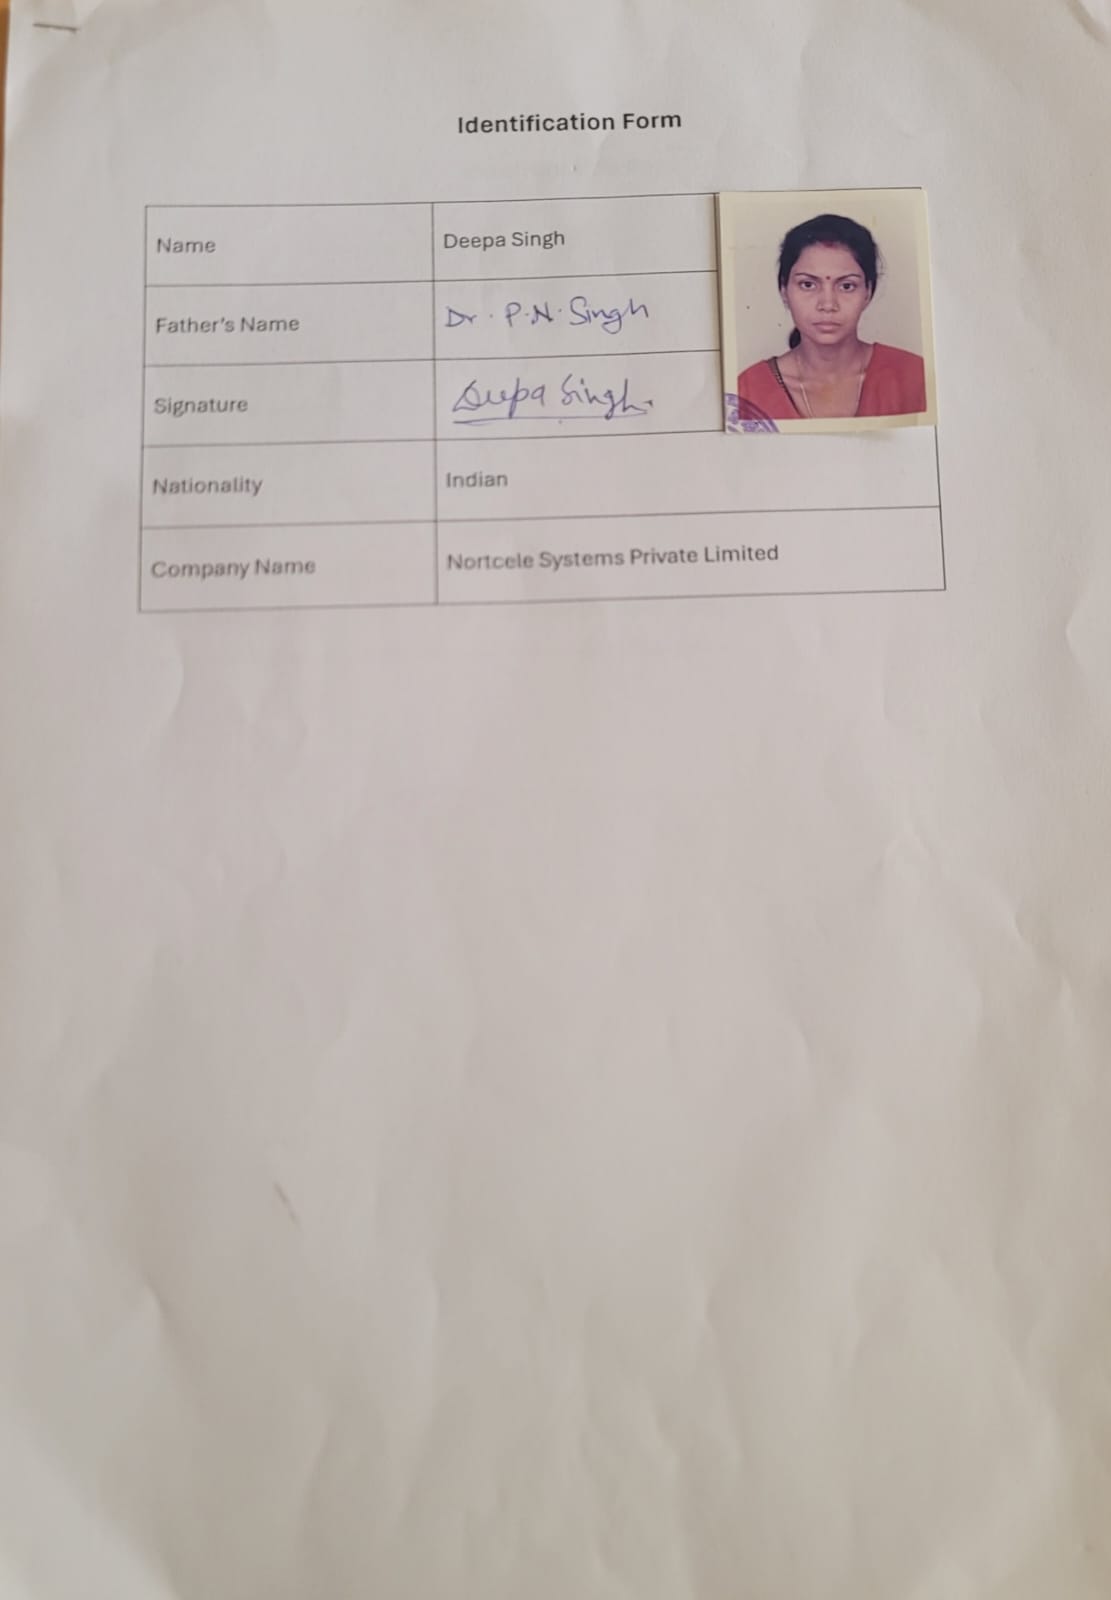 Identification Form
Name Deepa Singh
Father's Name Dr. P.N. Singh
Signature Deepa Singh.
Nationality Indian
Company Name Nortcele Systems Private Limited